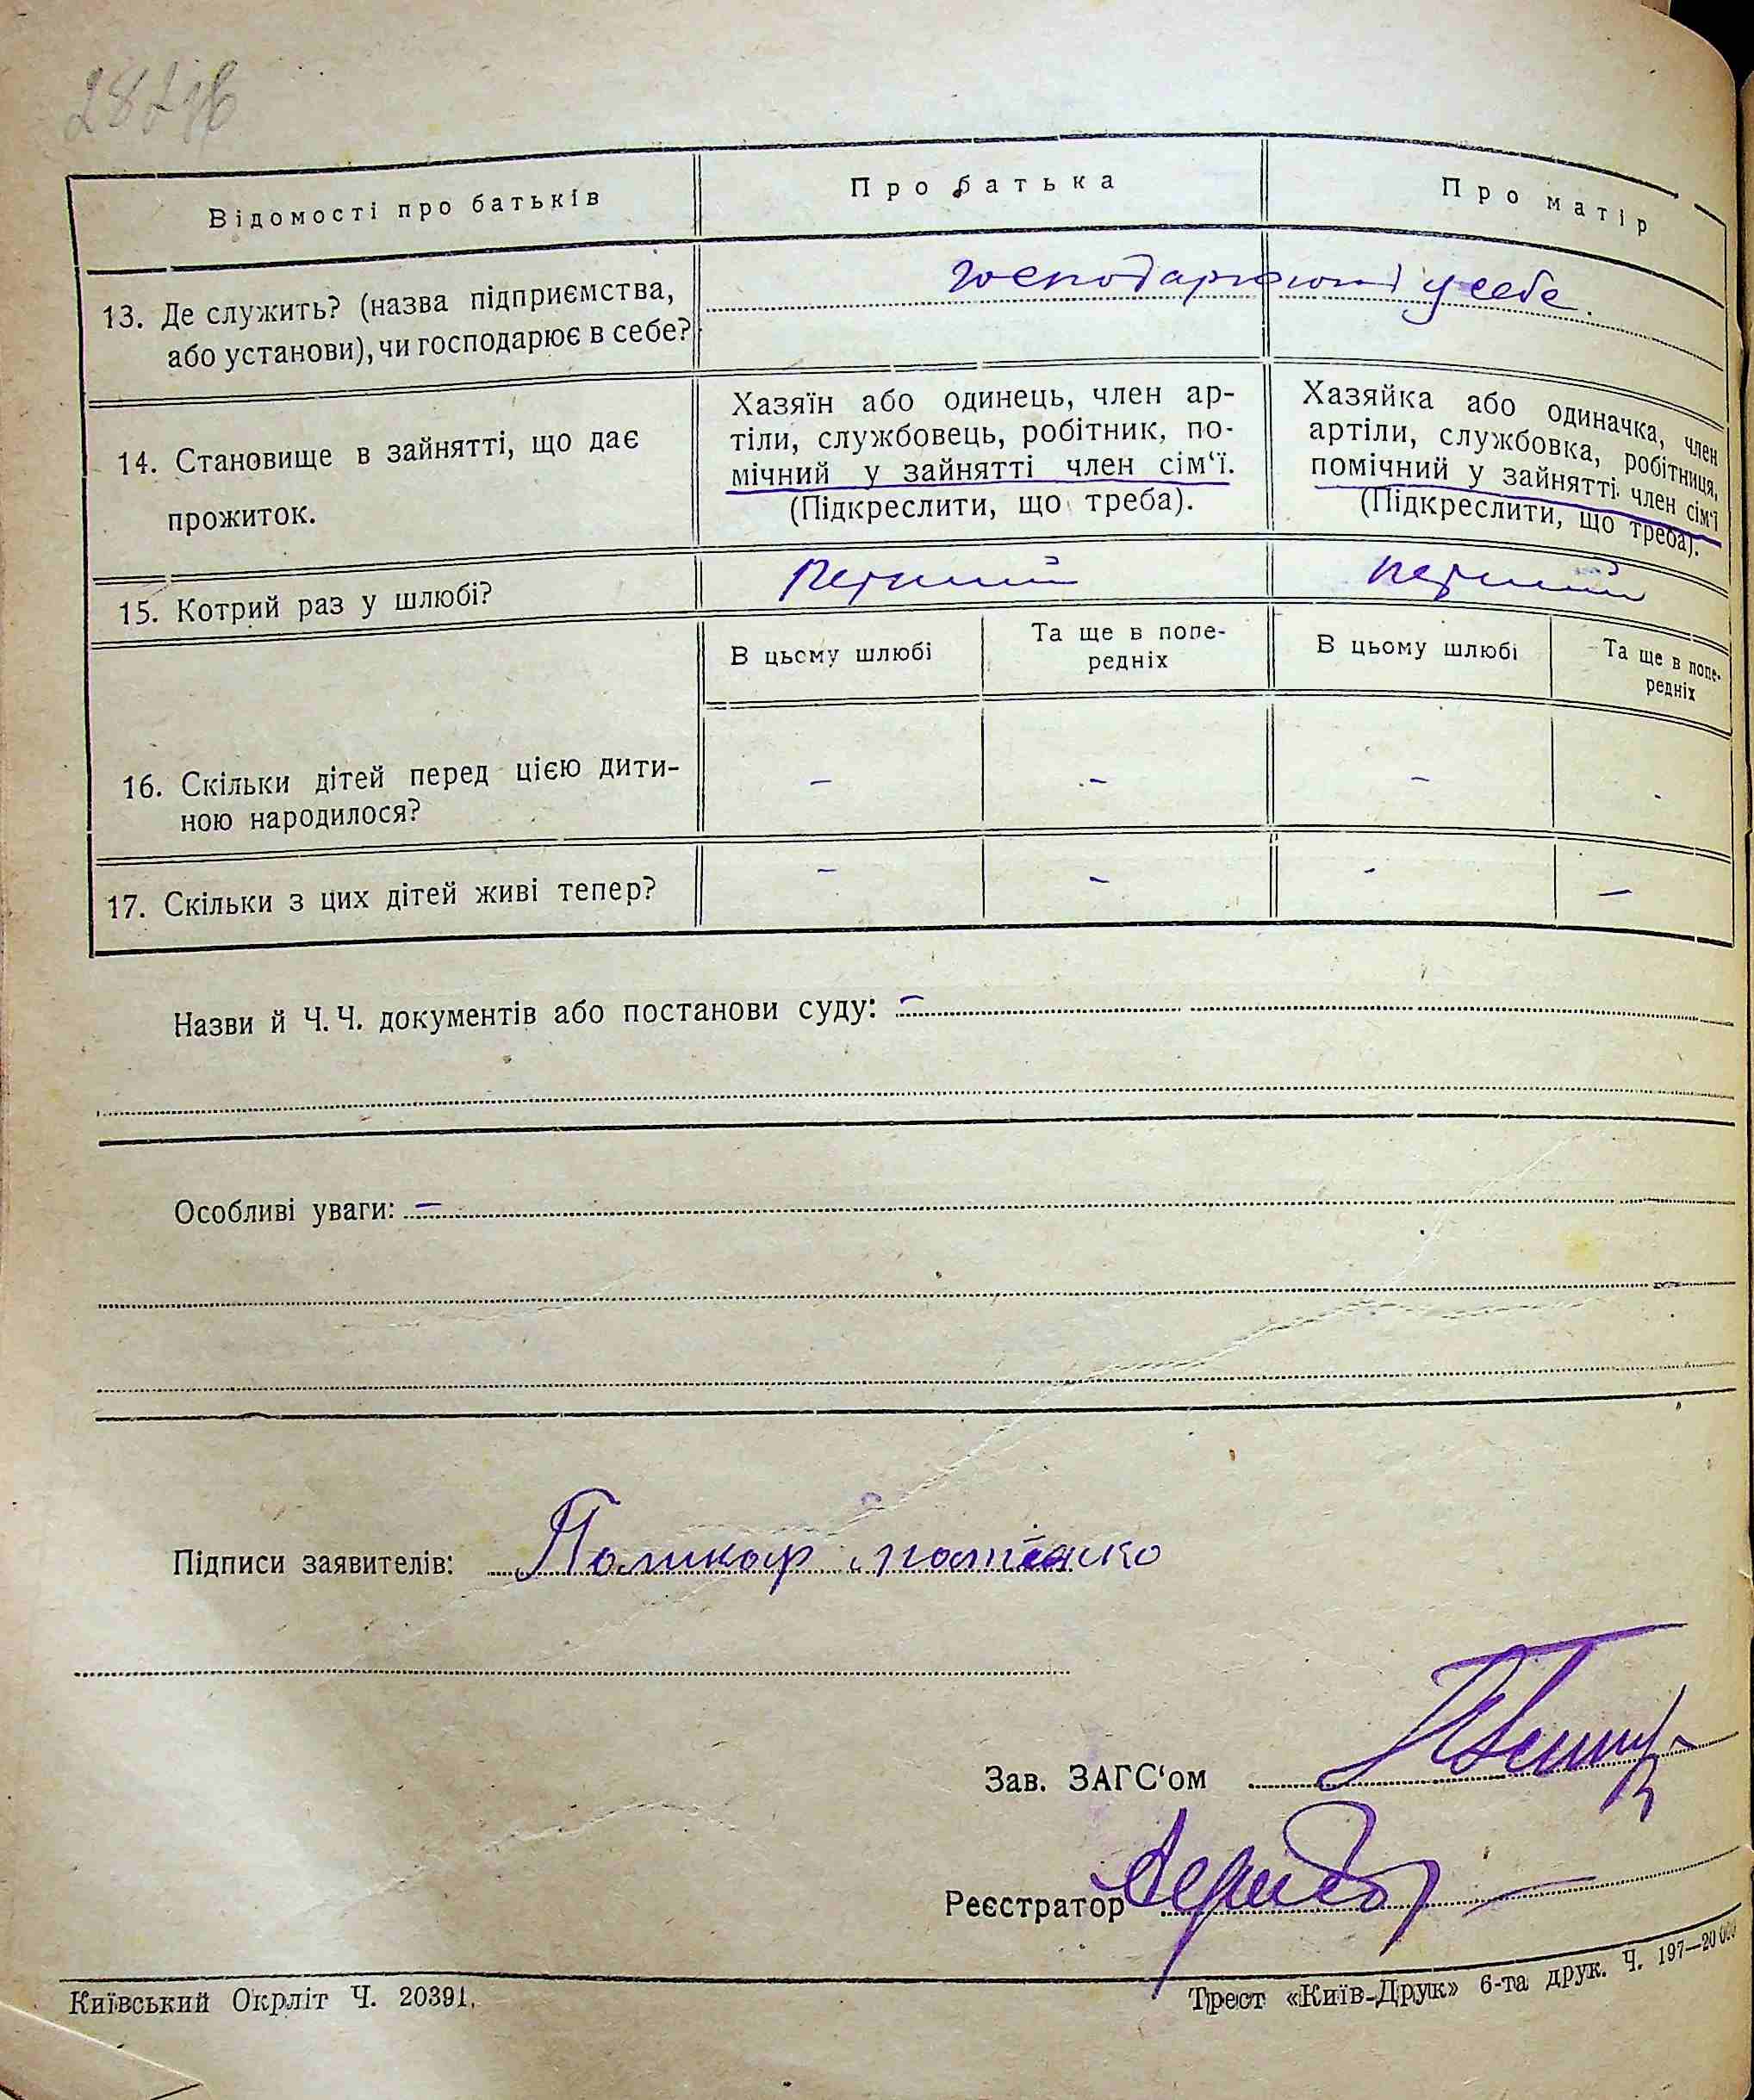 Відомості про батьків
Про батька
Про матір
13. Де служить? (назва підприємства,
або установи), чи господарює в себе?
господарюють у себе.
14. Становище в зайнятті, що дає
прожиток.
Хазяїн або одинець, член ар-
тіли, службовець, робітник, по-
мічний у зайнятті член сім‘ї.
(Підкреслити, що треба).
Хазяйка або одиначка, член
артіли, службовка, робітниця,
помічний у зайнятті член сім‘ї
(Підкреслити, що треба).
15. Котрий раз у шлюбі?
перший
перший
В цьому шлюбі
Та ще в попе-
редніх
В цьому шлюбі
Та ще в попе-
редніх
16. Скільки дітей перед цією дити-
ною народилося?
– – – -
17. Скільки з цих дітей живі тепер?
– – - –
Назви й Ч. Ч. документів або постанови суду: –
Особливі уваги: –
Підписи заявителів:
Зав. ЗАГС‘ом
Реєстратор
Київський Окрліт Ч. 20391.
Трест «Київ-Друк» 6-та друк. Ч. 197—20000